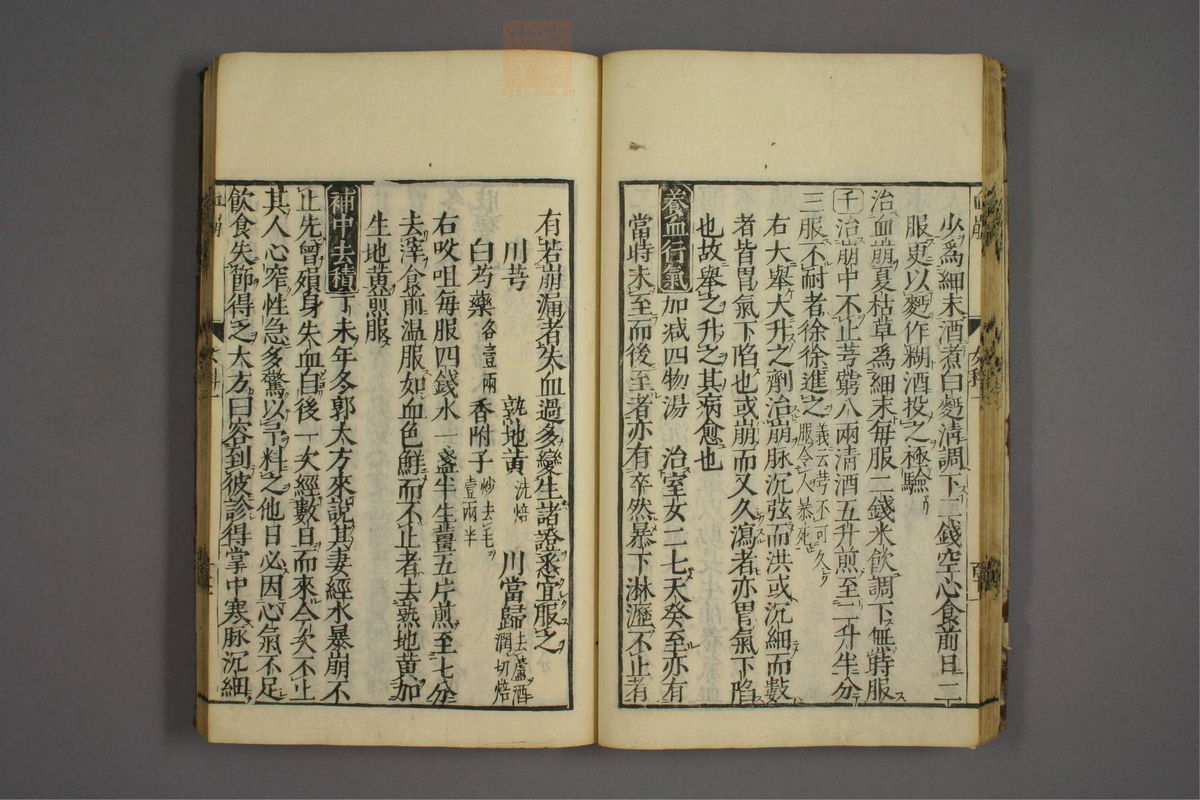 少爲細末酒煮白麪淸調下三錢空心食前日二
服更以麪作糊酒投之極驗
治血崩夏枯草爲細末每服二錢米飮調下無時服
千治崩中不止芎藭八兩淸酒五升煎至二升半分
三服不耐者徐徐進之義云芎不可久服令人暴死
右大舉大升之劑治崩脉沉弦而洪或沉細而數
者皆胃氣下陷也或崩而又久瀉者亦胃氣下陷
也故舉之升之其病愈也
養血行氣加减四物湯 治室女二七天癸至亦有
當時未至而後至者亦有卒然暴下淋瀝不止者
有若崩漏者失血過多變生諸證悉宜服之
川芎 熟地黃洗焙 川當歸去蘆酒潤切焙
白芍藥各壹兩 香附子炒去毛壹兩半
右㕮咀每服四錢水一盞半生薑五片煎至七分
去滓食前温服如血色鮮而不止者去熟地黃加
生地黃煎服
補中去積丁未年冬郭大方來說其妻經水暴崩不
止先曾殞身失血自後一次經數日而來今次不止
其人心窄性急多驚以予料之他日必因心氣不足
飮食失節得之大方曰容到彼診得掌中寒脉沉細